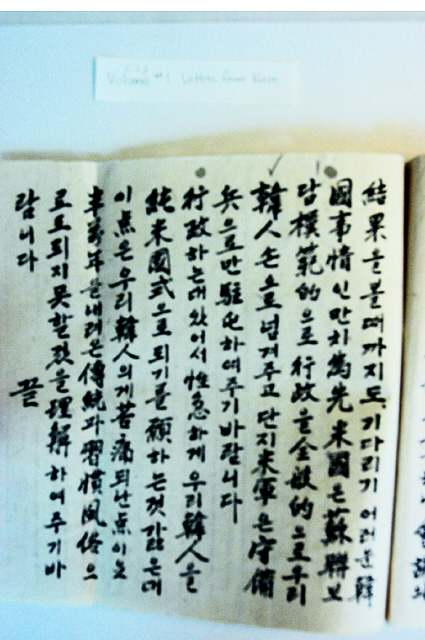 Volume #1 Letters from Korea
結果을볼때까지도 기다리기 어려운 韓
國事情인만치 爲先 米國은 蘇聯보
담 模範的으로 行政을 全般的으로 우리
韓人 손으로 넘겨주고 단지 米軍은 守備
兵으로만 駐屯하여주기 바랍니다
行政하는대 있어서 性急하게 우리 韓人을
純米國式으로 되기를 願하는것 갓은대
이点은 우리 韓人의게 苦痛되난 点이
半萬年을 내려온 傳統과 習慣風俗으
로도 되지 못할 것을 理解하여 주기 바
람니다 끝